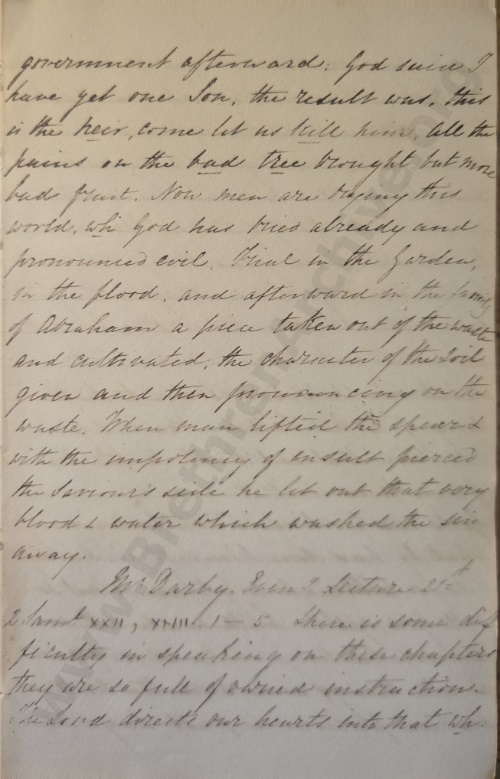 government afterward: God said I
have yet one Son, the result was, this
is the heir, come let us kill him. All the
pains on the bad tree brought but more
bad fruit. Now men are trying this
world, wh God has tried already and
pronounced evil. Trial in the Garden,
in the flood, and afterward in the family
of Abraham a piece taken out of the waste
and cultivated, the character of the soil
given and then pronouncing on the
waste. When man lifted the spear &
with the impotency of insult pierced
the Saviour's side he let out that very
blood & water which washed the sin
away.
Mr Darby. Eveng Lecture 21st
2 Saml XXII, XXIII. 1–5 There is some dif
ficulty in speaking on these chapters
they are so full of varied instruction.
The Lord directs our hearts into that wh